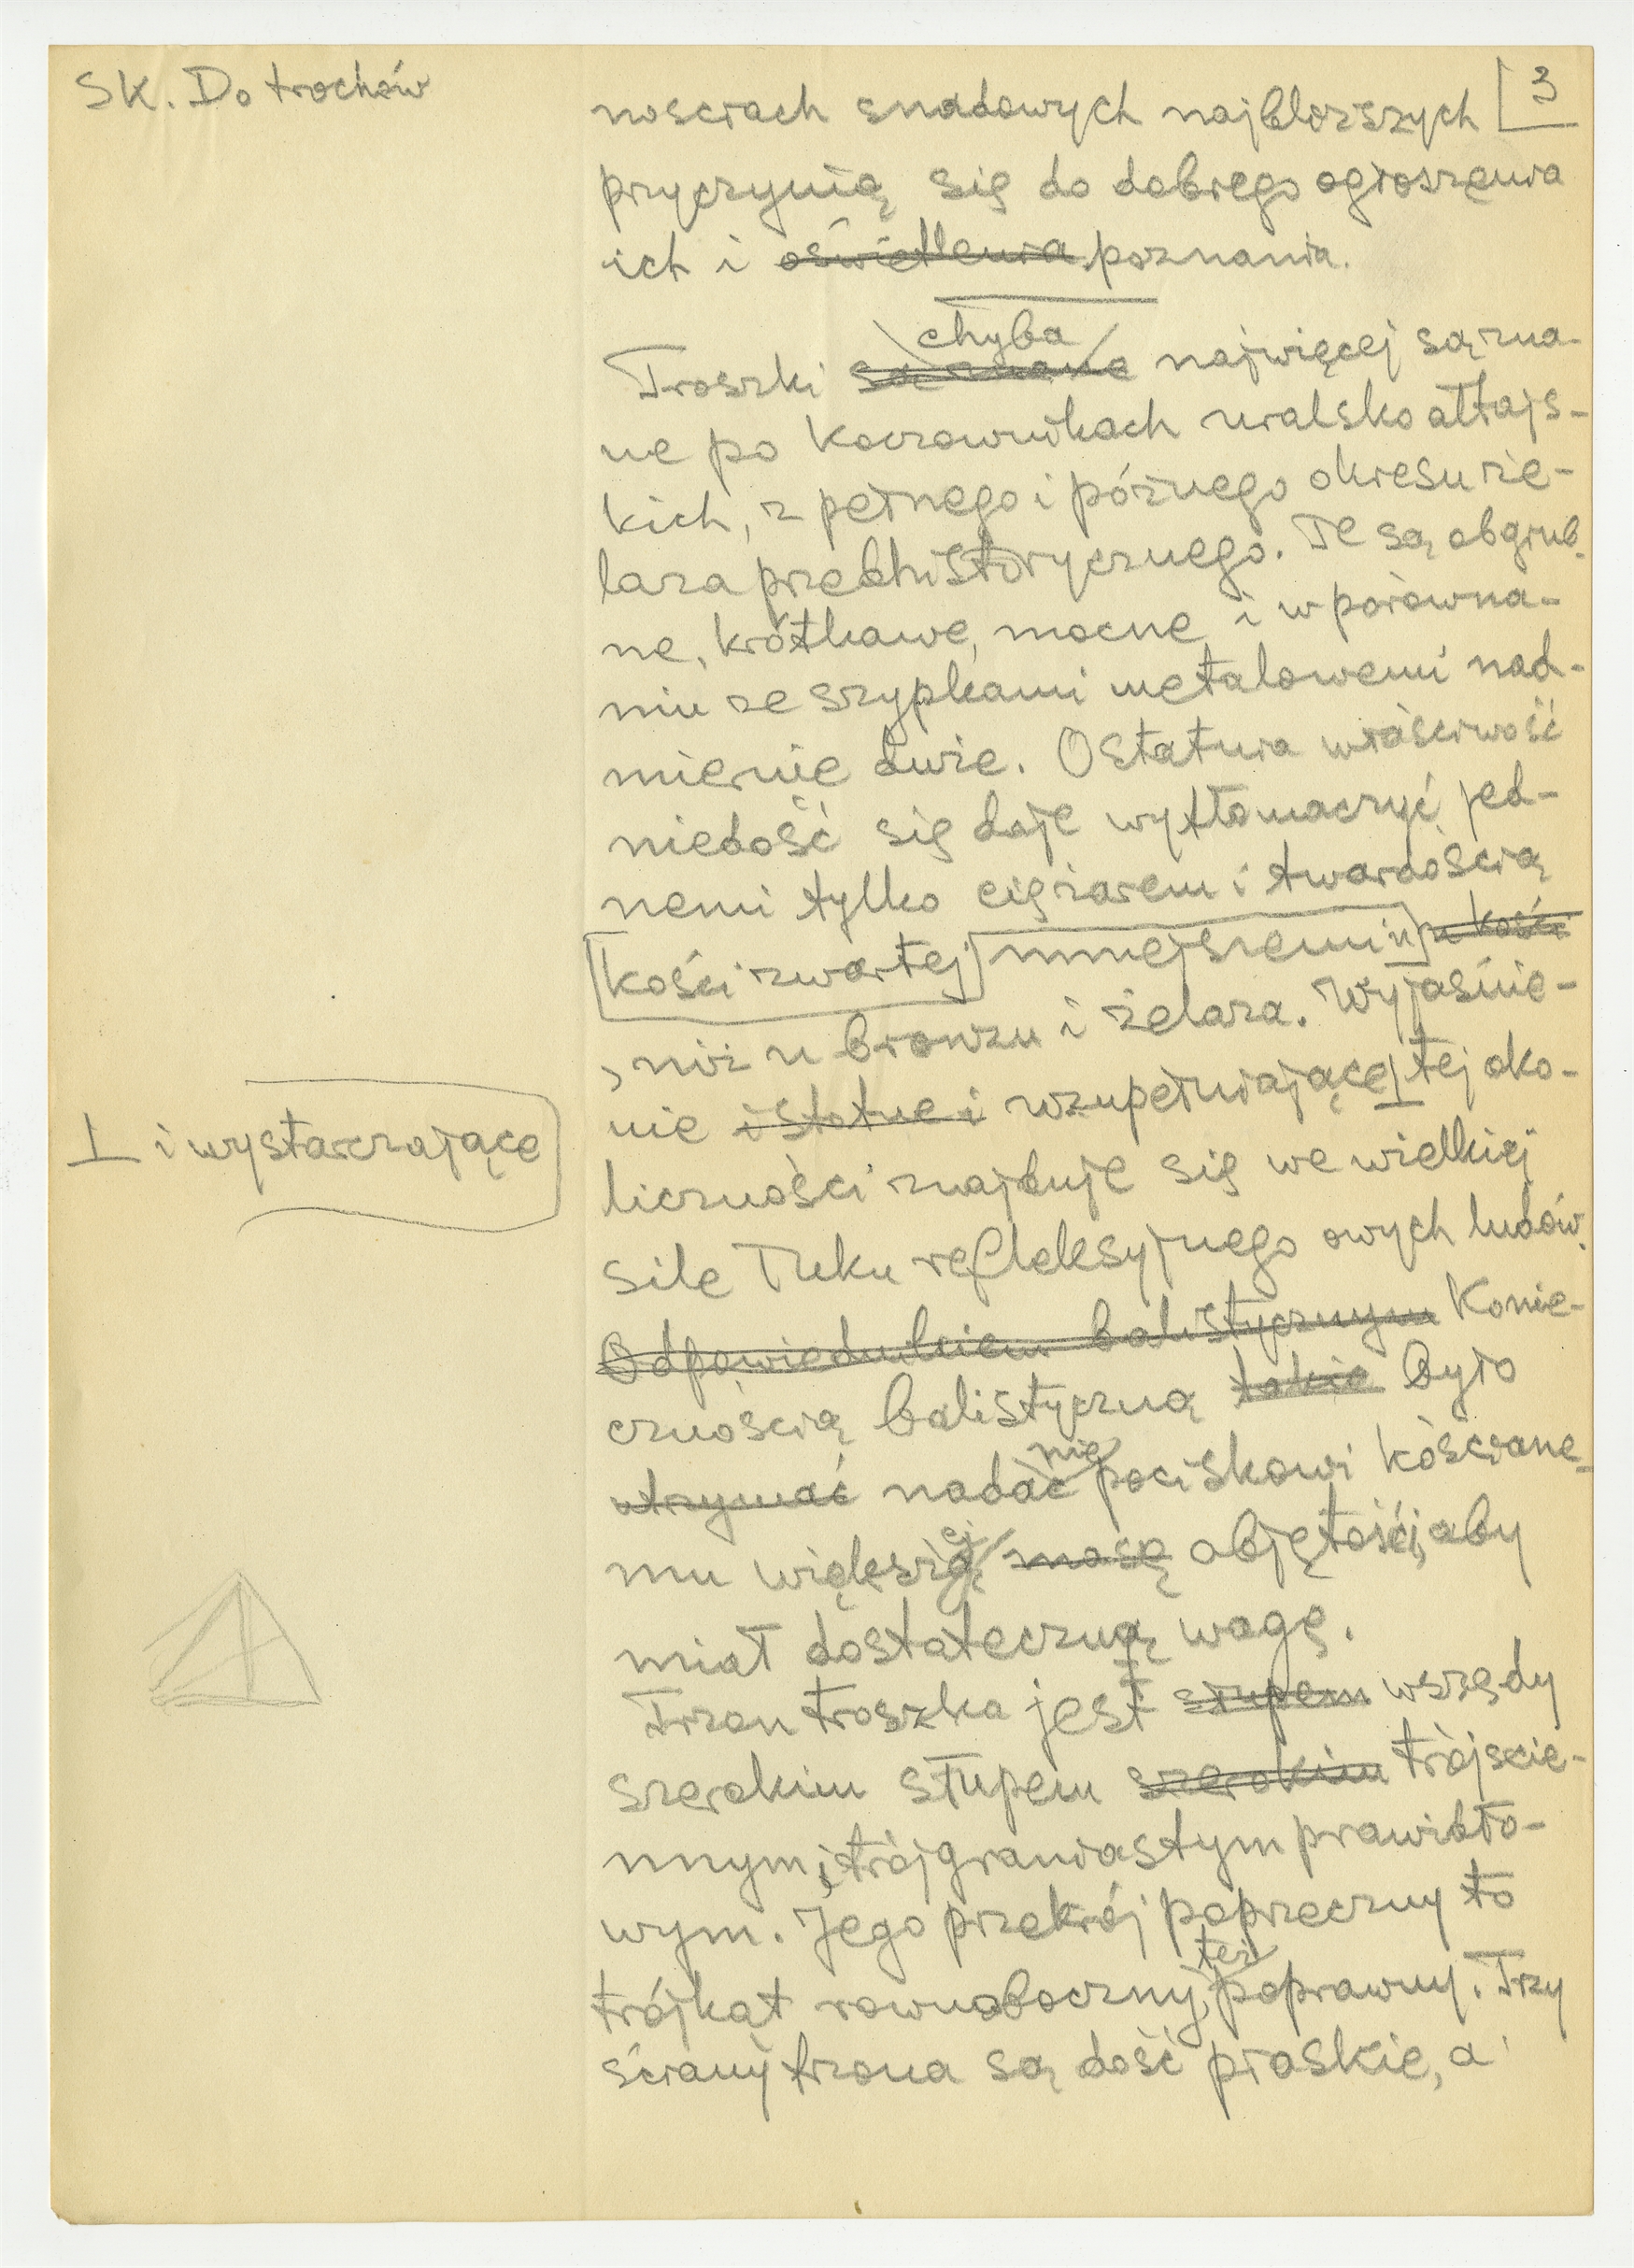 SK. Do trochów
3
nościach snadowych najbliższych
przyczynią się do dobrego ogłoszenia
ich i oświetlenia poznania.
chyba
Troszki są znane najwięcej są zna-
ne po koczownikach uralsko ałtajs-
kich, z pełnego i późnego okresu że-
laza przedhistorycznego. Te są obgrub-
ne, krótkawe, mocne i w porówna-
niu ze szypkami metalowemi nad-
miernie duże. Ostatnia właściwość
niedość się daje wytłomaczyć jed-
nemi tylko ciężarem i twardością
kości zwartej mniejszemi u kości
, niż u bronzu i żelaza. Wyjaśnie-
nie istotne i wzupełniające ⊥ tej oko-
⊥ i wystarczające
liczności znajduje się we wielkiej
sile łuku refleksyjnego owych ludów.
Odpowiednikiem balistycznym Konie-
cznością balistyczną takie było
nie
utrzymać nadać pociskowi kościane-
ej
mu większą masę objętości, aby
miał dostateczną wagę.
Trzon troszka jest słupem wszędy
szerokim słupem szerokim trójście-
nnym i trójgraniastym prawidło-
wym. Jego przekrój poprzeczny to
też
trójkąt równoboczny, poprawny. Trzy
ściany trzona są dość płaskie, a